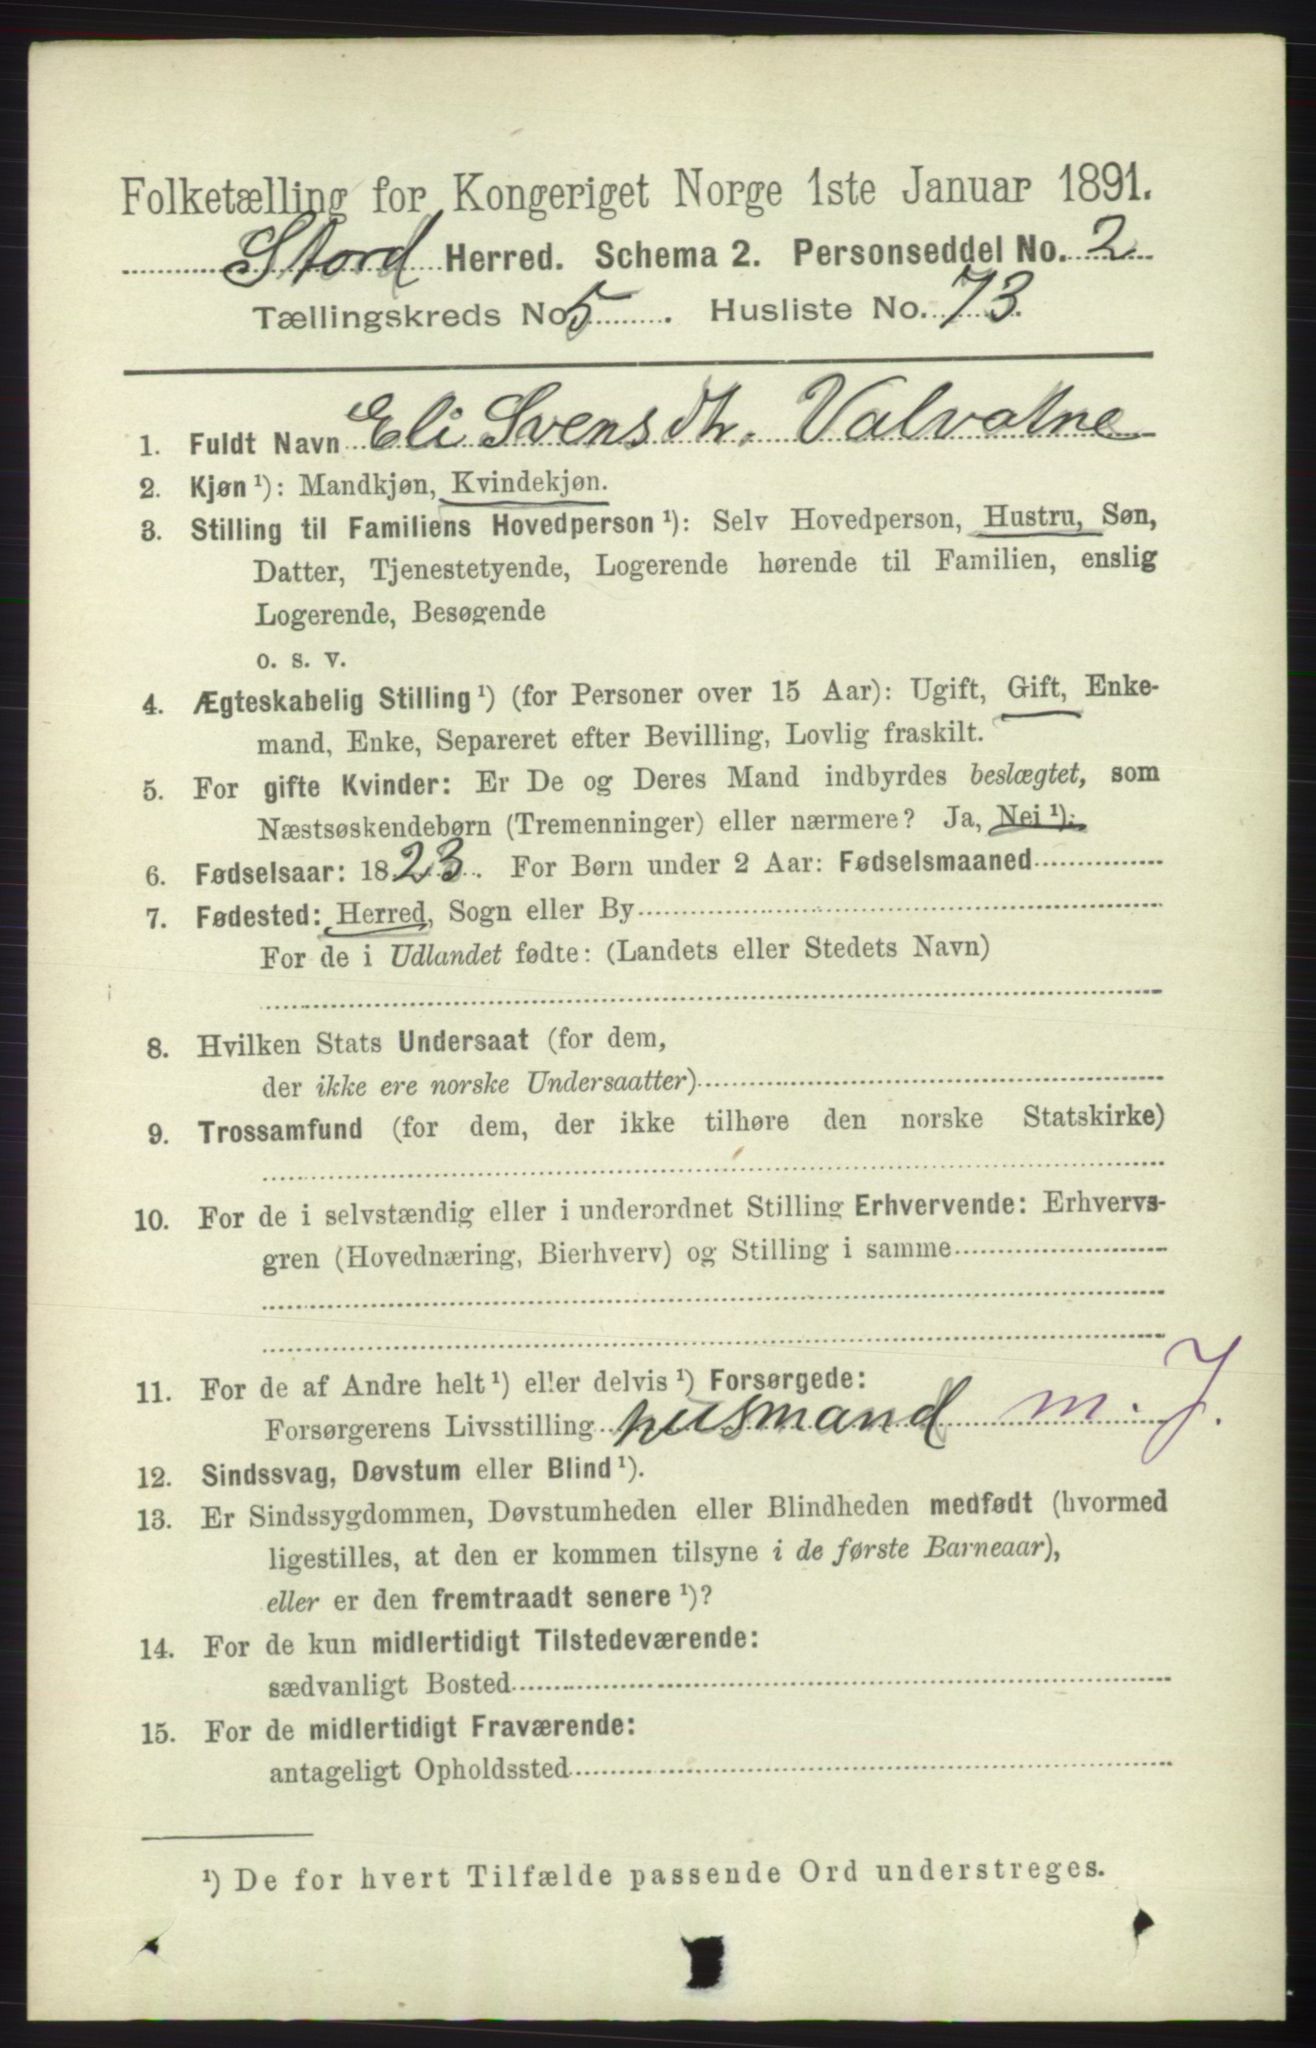 Folketælling for Kongeriget Norge 1ste Januar 1891.
Stord Herred. Schema 2. Personseddel No. 2
Tællingskreds No. 5. Husliste No. 73.
1. Fuldt Navn Eli Svensdtr. Valvatne
2. Kjøn ¹): Mandkjøn, Kvindekjøn.
3. Stilling til Familiens Hovedperson ¹): Selv Hovedperson, Hustru, Søn,
Datter, Tjenestetyende, Logerende hørende til Familien, enslig
Logerende, Besøgende
o. s. v.
4. Ægteskabelig Stilling ¹) (for Personer over 15 Aar): Ugift, Gift, Enke-
mand, Enke, Separeret efter Bevilling, Lovlig fraskilt.
5. For gifte Kvinder: Er De og Deres Mand indbyrdes beslægtet, som
Næstsøskendebørn (Tremenninger) eller nærmere? Ja, Nei ¹).
6. Fødselsaar: 1823. For Børn under 2 Aar: Fødselsmaaned
7. Fødested: Herred, Sogn eller By
For de i Udlandet fødte: (Landets eller Stedets Navn)
8. Hvilken Stats Undersaat (for dem,
der ikke ere norske Undersaatter)
9. Trossamfund (for dem, der ikke tilhøre den norske Statskirke)
10. For de i selvstændig eller i underordnet Stilling Erhvervende: Erhvervs-
gren (Hovednæring, Bierhverv) og Stilling i samme
11. For de af Andre helt ¹) eller delvis ¹) Forsørgede:
Forsørgerens Livsstilling husmand m. J.
12. Sindssvag, Døvstum eller Blind ¹).
13. Er Sindssygdommen, Døvstumheden eller Blindheden medfødt (hvormed
ligestilles, at den er kommen tilsyne i de første Barneaar),
eller er den fremtraadt senere ¹)?
14. For de kun midlertidigt Tilstedeværende:
sædvanligt Bosted
15. For de midlertidigt Fraværende:
antageligt Opholdssted
¹) De for hvert Tilfælde passende Ord understreges.